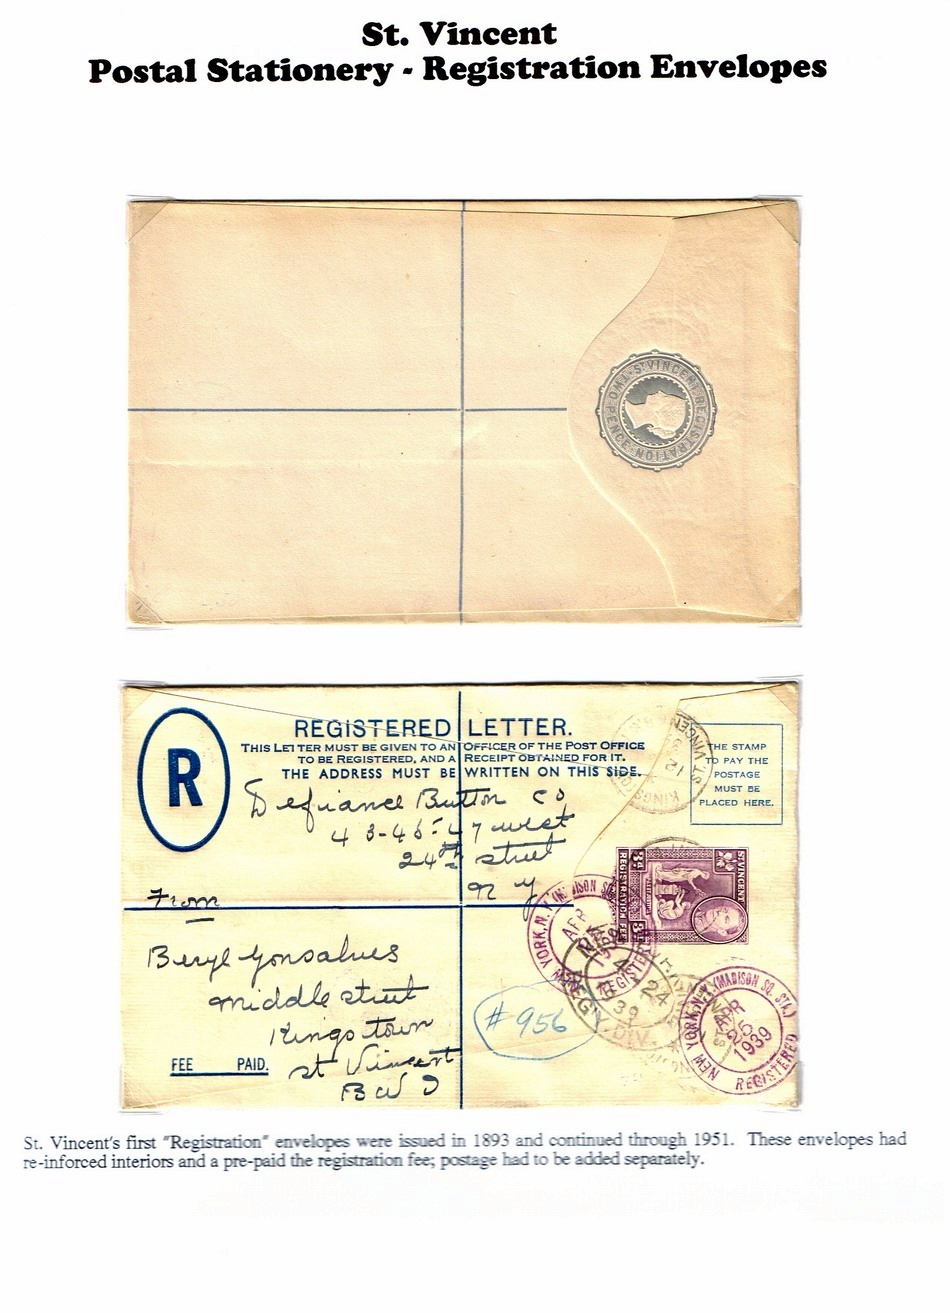 St. Vincent
Postal Stationery - Registration Envelopes
St VINCENT REGISTRATION TWO PENCE
R
REGISTERED LETTER.
THIS LETTER MUST BE GIVEN TO AN OFFICER OF THE POST OFFICE
TO BE REGISTERED, AND A RECEIPT OBTAINED FOR IT.
THE ADDRESS MUST BE WRITTEN ON THIS SIDE.
THE STAMP
TO PAY THE
POSTAGE
MUST BE
PLACED HERE.
Defiance Button Co
43-45-47 west
24th street
N Y
From
Beryl Gonsalves
middle street
Kingstown
St Vincent
B W I
FEE PAID.
# 956
ST VINCENT
3d REGISTRATION FEE 3d
NEW YORK, N.Y. (MADISON SQ. STA.)
APR
25
1939
REGISTERED
St. Vincent's first "Registration" envelopes were issued in 1893 and continued through 1951. These envelopes had
re-inforced interiors and a pre-paid the registration fee; postage had to be added separately.